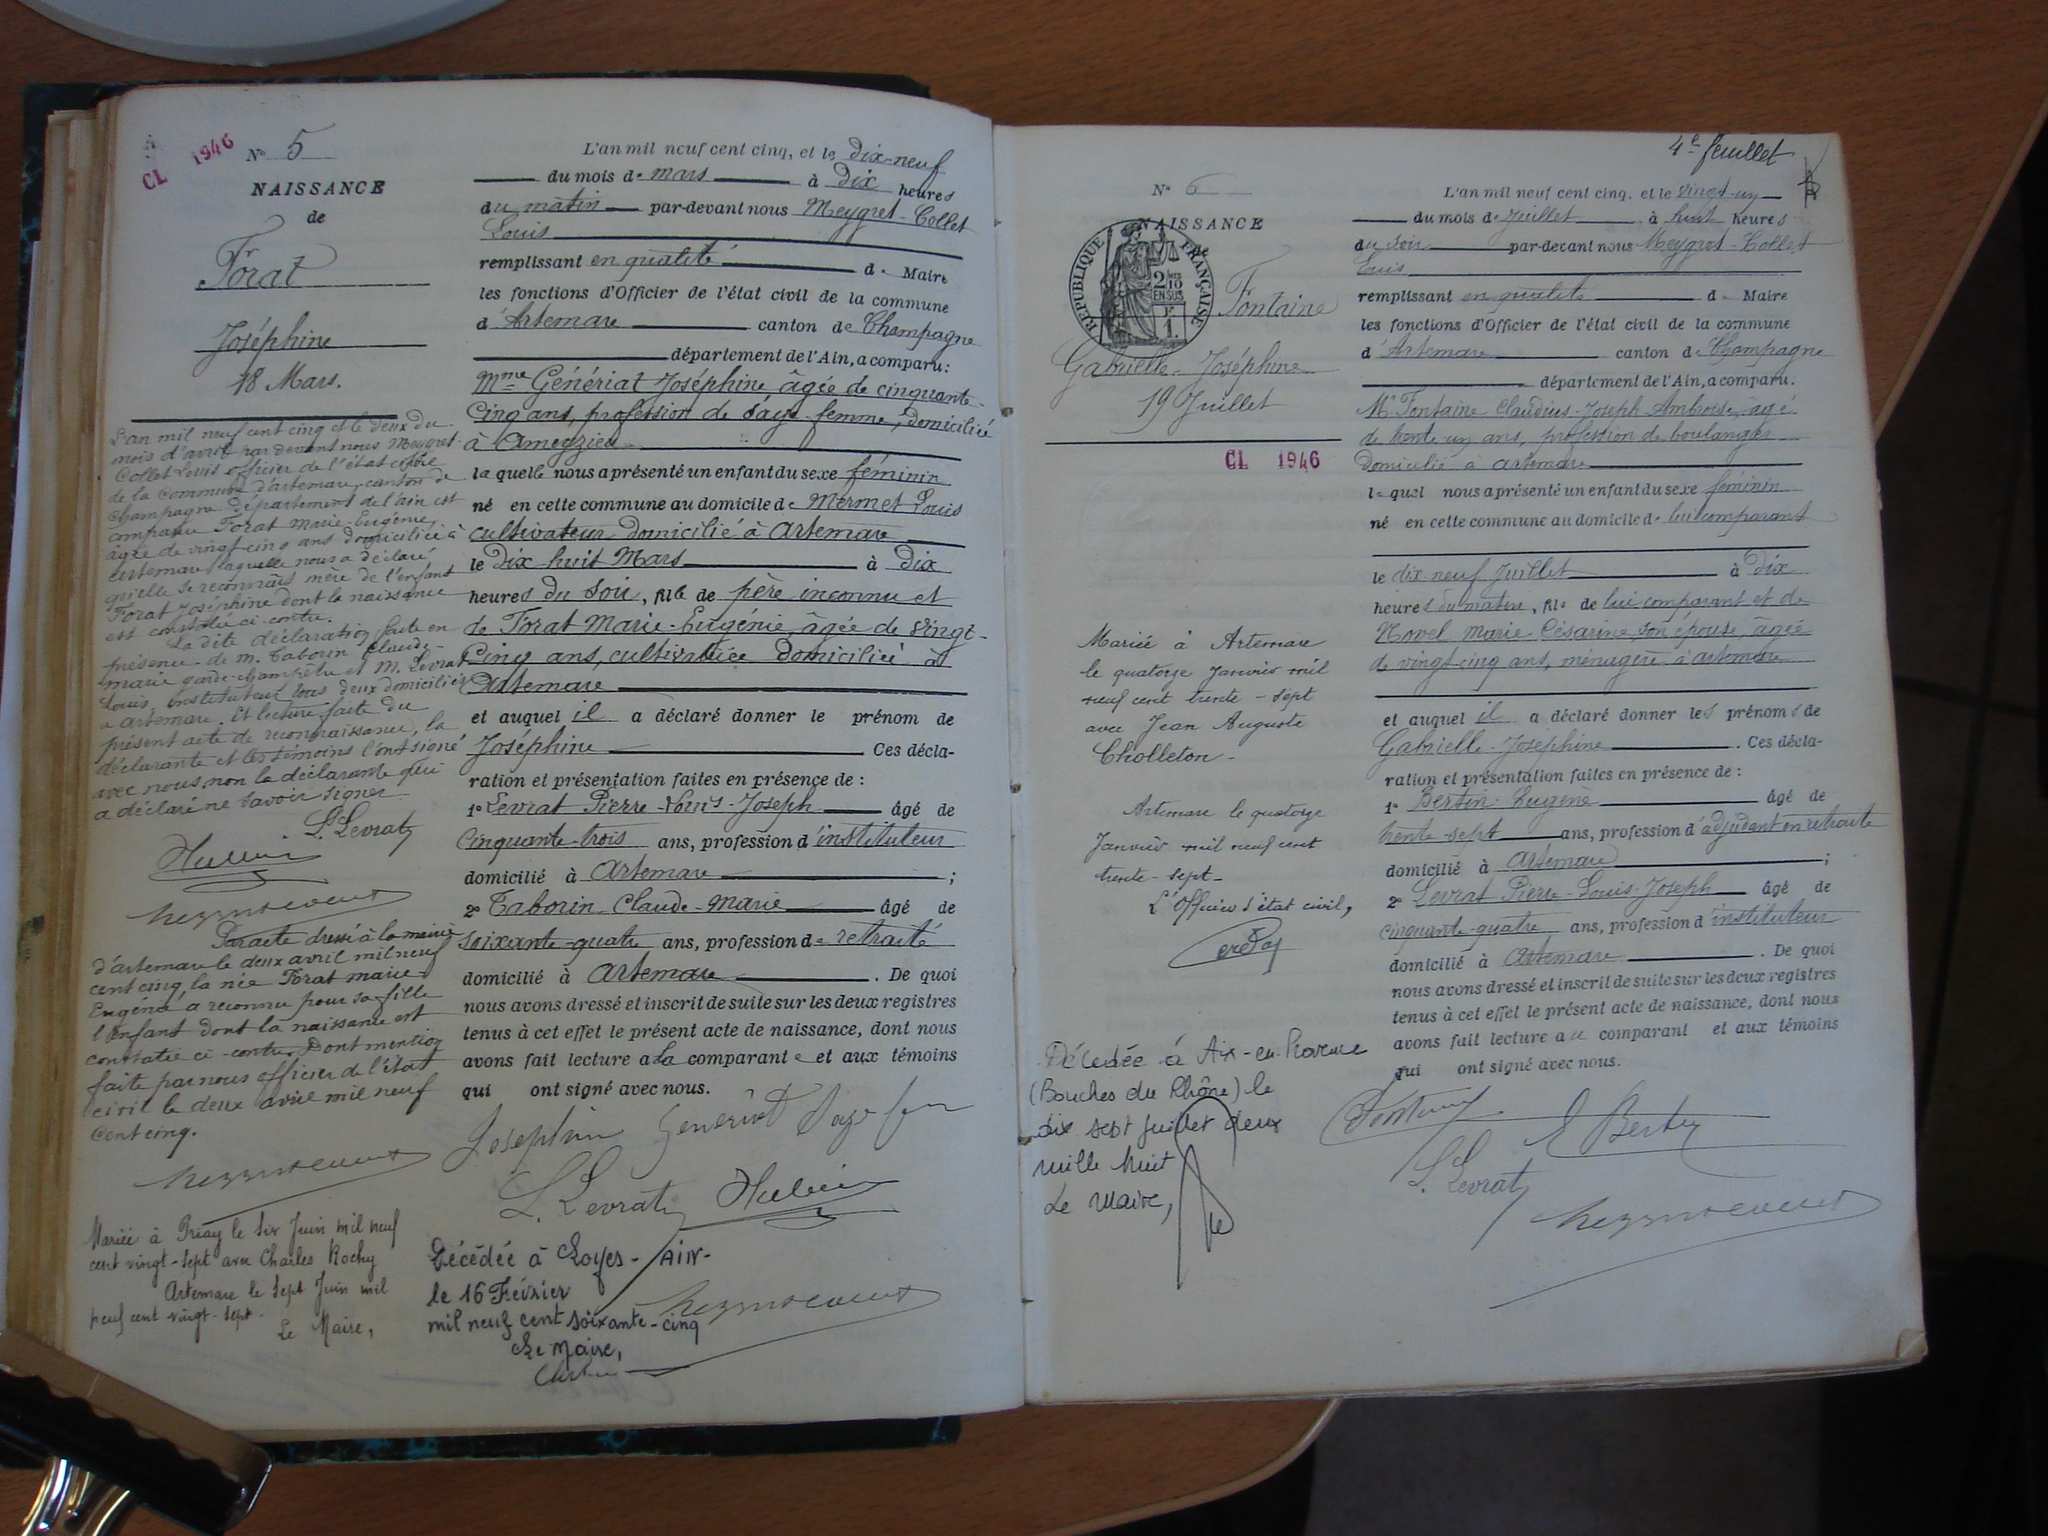 CL 1946
N° 5
NAISSANCE
de
Forat
Joséphine
18 Mars.
L'an mil neuf cent cinq et le deux du
mois d'avril par devant nous Meygret-
Collet Louis officier de l'état civil
de la Commune d'artemare, canton de
champagne Département de l'ain est
comparue Forat Marie Eugénie,
âgée de vingt-cinq ans domiciliée à
artemare, laquelle nous a déclaré
qu'elle se reconnaît mère de l'enfant
Forat Joséphine dont la naissance
est constatée ci-contre.
La dite déclaration faite en
présence de m. Taborin Claude-
marie garde-champêtre et M. Levrat
Louis, instituteur tous deux domiciliés
à artemare. Et lecture faite du
présent acte de reconnaissance, la
déclarante et les témoins l'ont signé
avec nous, non la déclarante qui
a déclaré ne savoir signer
L. Levrat
Par acte dressé à la mairie
d'artemare le deux avril mil neuf
cent cinq, la née Forat marie
Eugénie a reconnu pour sa fille
l'enfant dont la naissance est
constatée ci-contre. Dont mention
faite par nous officier de l'état
civil le deux avril mil neuf
cent cinq.
Mariée à Priay le six Juin mil neuf
cent vingt-sept avec Charles Rochy
Artemare le sept Juin mil
neuf cent vingt-sept.
Le Maire,
L'an mil neuf cent cinq, et le dix-neuf
du mois de mars à dix heures
du matin par-devant nous Meygret-Collet
Louis
remplissant en qualité de Maire
les fonctions d'Officier de l'état civil de la commune
d'Artemare canton de Champagne
département de l'Ain, a comparu:
Mme Génériat Joséphine âgée de cinquante-
cinq ans, profession de sage-femme, domiciliée
à Ameyzieu
la quelle nous a présenté un enfant du sexe féminin
né en cette commune au domicile de Mermet Louis
cultivateur domicilié à Artemare
le dix huit Mars à dix
heures du soir, fille de père inconnu et
de Forat Marie-Eugénie âgée de vingt-
cinq ans, cultivatrice domiciliée à
Artemare
et auquel il a déclaré donner le prénom de
Joséphine Ces décla-
ration et présentation faites en présence de :
1° Levrat Pierre-Louis-Joseph âgé de
cinquante-trois ans, profession d'instituteur
domicilié à Artemare ;
2° Taborin Claude-Marie âgé de
soixante-quatre ans, profession de retraité
domicilié à Artemare . De quoi
nous avons dressé et inscrit de suite sur les deux registres
tenus à cet effet le présent acte de naissance, dont nous
avons fait lecture à la comparante et aux témoins
qui ont signé avec nous.
Joséphine Génériat Sage fem
L. Levrat
Décédée à Loyes - AIN -
le 16 Février
mil neuf cent soixante-cinq
Le Maire,
4e feuillet
N° 6
NAISSANCE
RÉPUBLIQUE FRANÇAISE
2/10
EN SUS
1.
Fontaine
Gabrielle-Joséphine
19 Juillet
CL 1946
Mariée à Artemare
le quatorze Janvier mil
neuf cent trente-sept
avec Jean Auguste
Cholleton -
Artemare le quatorze
Janvier mil neuf cent
trente-sept -
L'Officier d'état civil,
Décédée à Aix-en-Provence
(Bouches du Rhône) le
dix sept juillet deux
mille huit
Le Maire,
L'an mil neuf cent cinq, et le vingt-un
du mois de Juillet à huit heures
du soir par-devant nous Meygret-Collet
Louis
remplissant en qualité de Maire
les fonctions d'Officier de l'état civil de la commune
d'Artemare canton de Champagne
département de l'Ain, a comparu.
Mr Fontaine Claudius-Joseph-Ambroise âgé
de trente un ans, profession de boulanger
domicilié à artemare
le quel nous a présenté un enfant du sexe féminin
né en cette commune au domicile de lui comparant
le dix neuf Juillet à dix
heures du matin, fils de lui comparant et de
Novel Marie Césarine, son épouse, âgée
de vingt-cinq ans, ménagère à artemare
et auquel il a déclaré donner les prénoms de
Gabrielle-Joséphine . Ces décla-
ration et présentation faites en présence de :
1° Bertin Eugène âgé de
trente-sept ans, profession d'adjudant en retraite
domicilié à Artemare ;
2° Levrat Pierre-Louis-Joseph âgé de
cinquante-quatre ans, profession d'instituteur
domicilié à Artemare . De quoi
nous avons dressé et inscrit de suite sur les deux registres
tenus à cet effet le présent acte de naissance, dont nous
avons fait lecture au comparant et aux témoins
qui ont signé avec nous.
Fontaine
E Bertin
L. Levrat